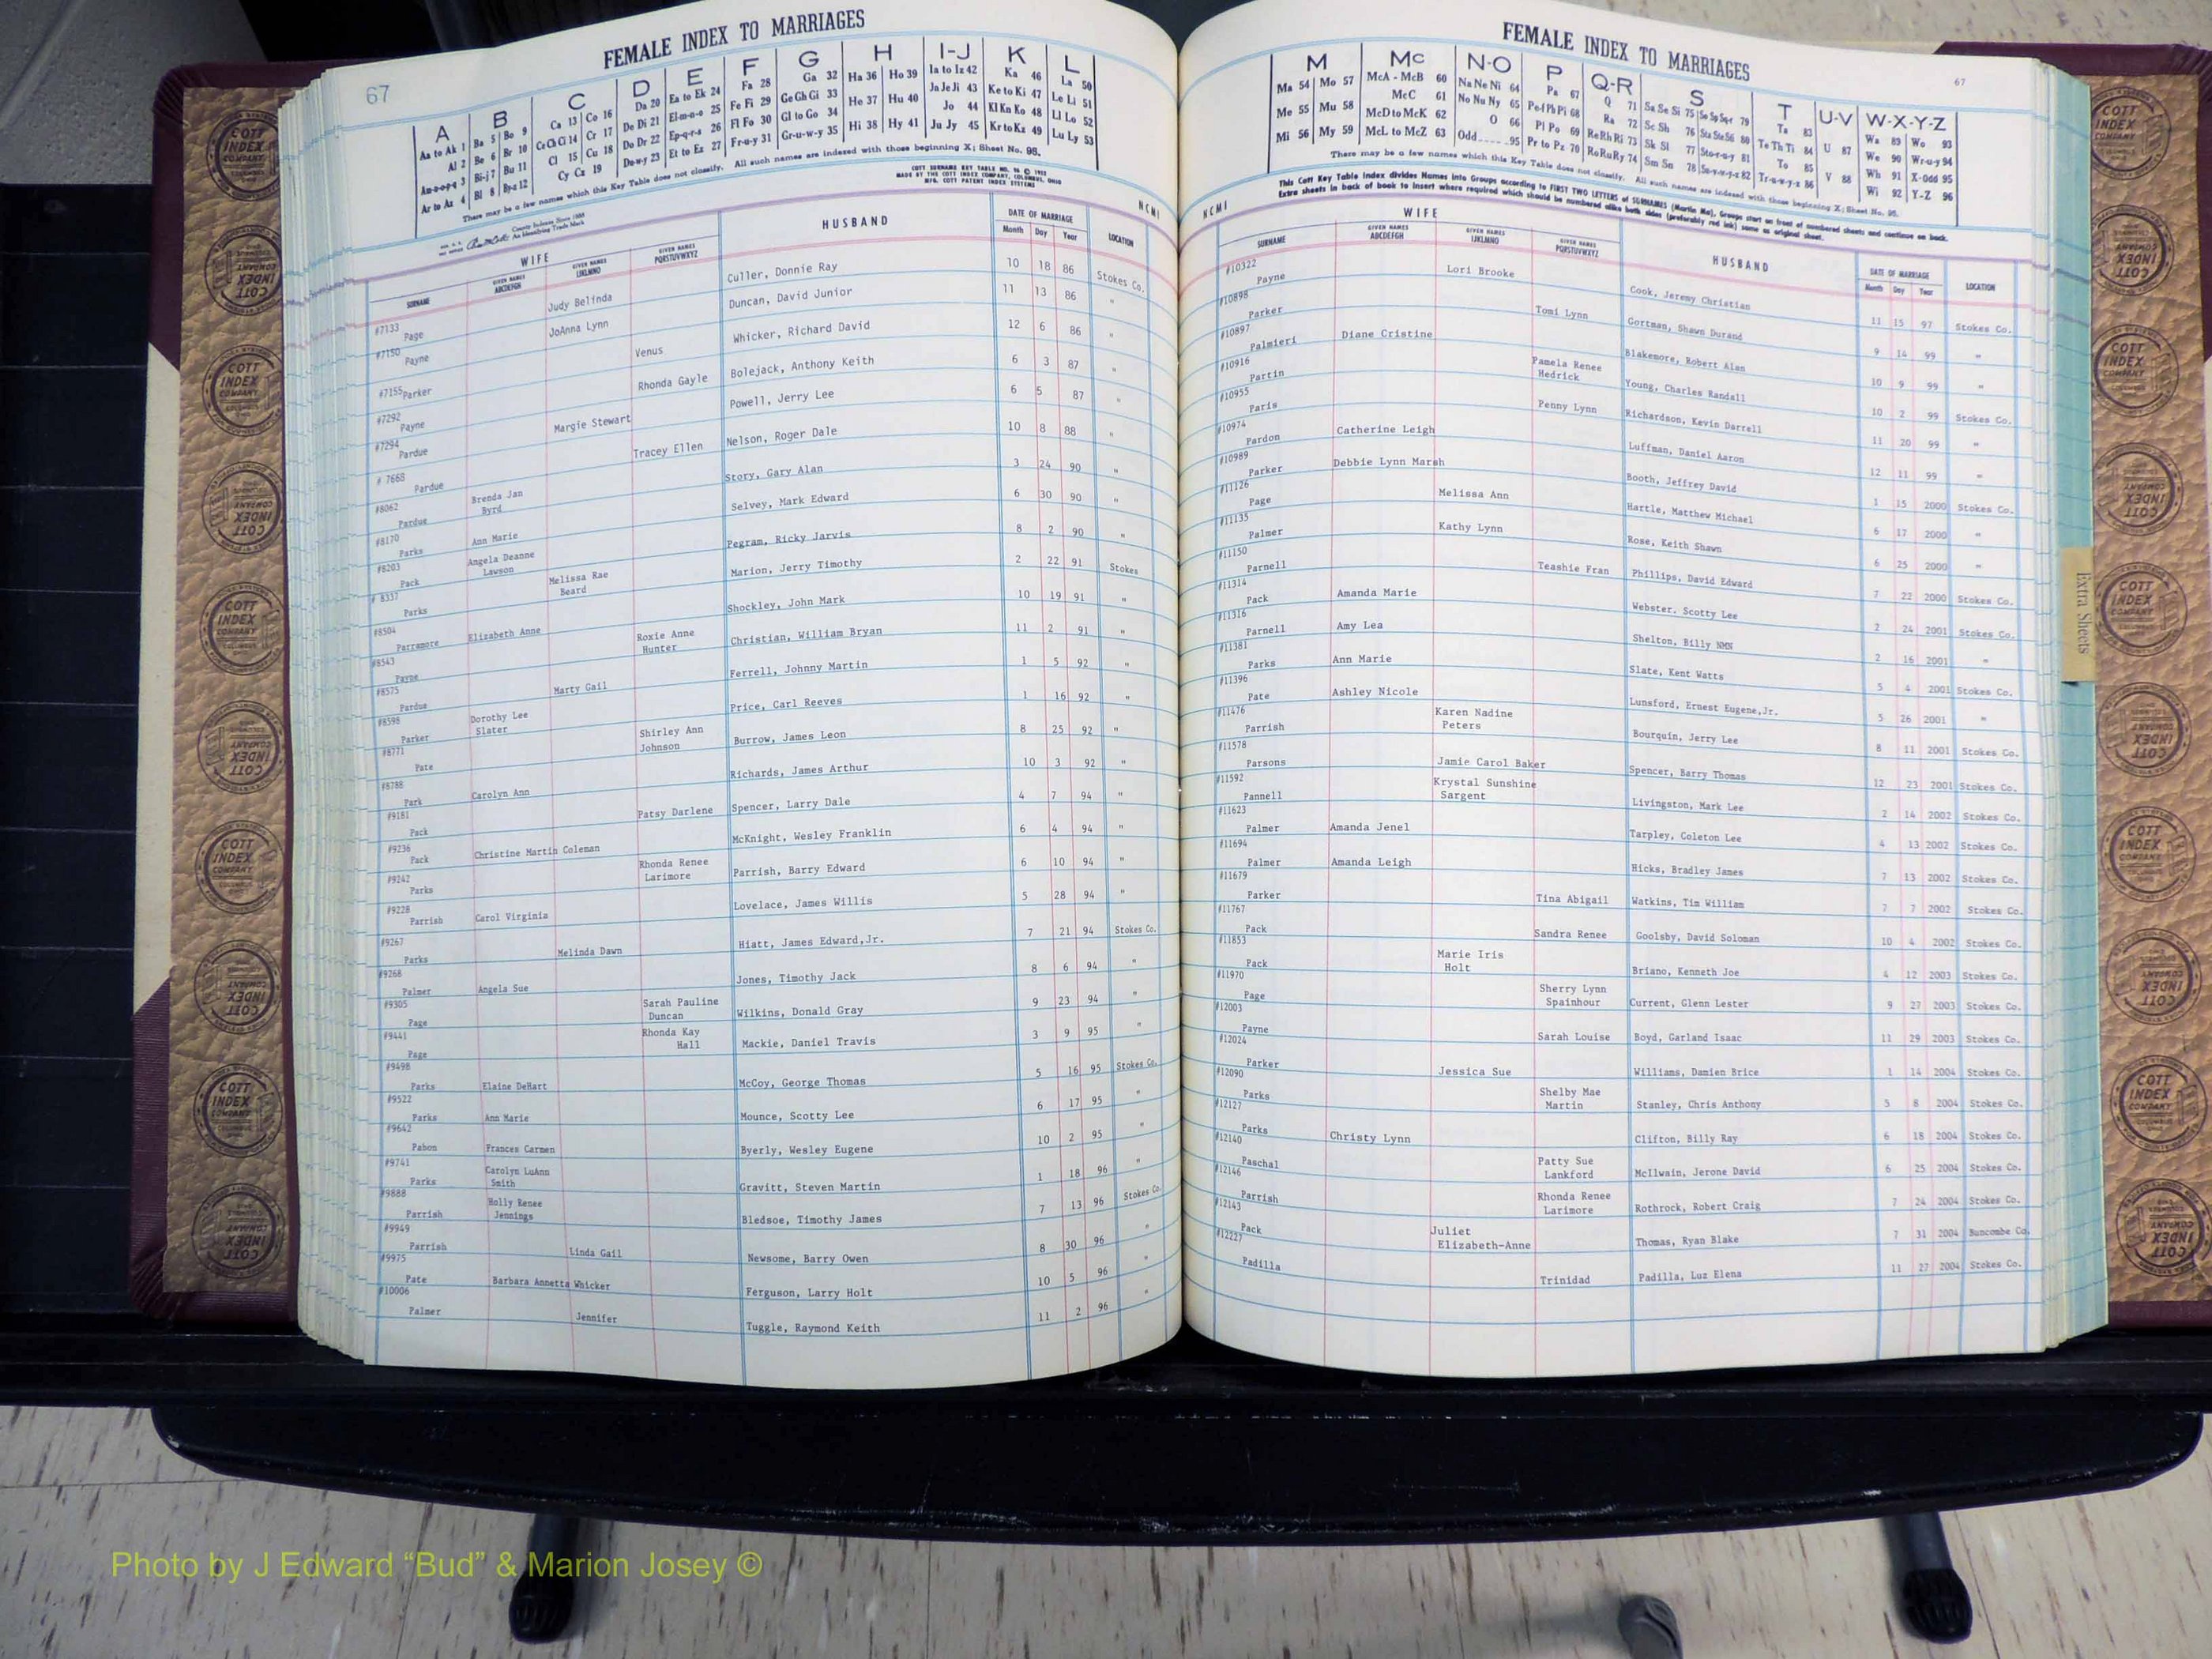 67
FEMALE INDEX TO MARRIAGES
A B C D E F G H I-J K L
Aa to Ak 1 Ba 5 Bo 9 Ca 13 Co 16 Da 20 Ea to Ek 24 Fa 28 Ga 32 Ha 36 Ho 39 Ia to Iz 42 Ka 46 La 50
Al 2 Be 6 Br 10 Ce Ch Ci 14 Cr 17 De Di 21 El-m-n-o 25 Fe Fi 29 Ge Gh Gi 33 He 37 Hu 40 Ja Je Ji 43 Ke to Ki 47 Le Li 51
An-o-p-q 3 Bi-j 7 Bu 11 Cl 15 Cu 18 Do Dr 22 Ep-q-r-s 26 Fl Fo 30 Gl to Go 34 Hi 38 Hy 41 Jo 44 Kl Kn Ko 48 Ll Lo 52
Ar to Az 4 Bl 8 By-z 12 Cy Cz 19 Du-w-y 23 Et to Ez 27 Fr-u-y 31 Gr-u-w-y 35 Ju Jy 45 Kr to Kz 49 Lu Ly 53
There may be a few names which this Key Table does not classify. All such names are indexed with those beginning X; Sheet No. 95.
COTT SURNAME KEY TABLE NO. 96 © 1952
MADE BY THE COTT INDEX COMPANY, COLUMBUS, OHIO
MFG. COTT PATENT INDEX SYSTEMS
County Indexes Since 1888
An Identifying Trade Mark
NCMI
WIFE HUSBAND DATE OF MARRIAGE LOCATION
SURNAME GIVEN NAMES ABCDEFGH GIVEN NAMES IJKLMNO GIVEN NAMES PQRSTUVWXYZ Month Day Year
#7133 Page Judy Belinda Culler, Donnie Ray 10 18 86 Stokes Co.
#7150 Payne JoAnna Lynn Duncan, David Junior 11 13 86 "
#7155 Parker Venus Whicker, Richard David 12 6 86 "
#7292 Payne Rhonda Gayle Bolejack, Anthony Keith 6 3 87 "
#7294 Pardue Margie Stewart Powell, Jerry Lee 6 5 87 "
# 7668 Pardue Tracey Ellen Nelson, Roger Dale 10 8 88 "
#8062 Pardue Brenda Jan Byrd Story, Gary Alan 3 24 90 "
#8170 Parks Ann Marie Selvey, Mark Edward 6 30 90 "
#8203 Pack Angela Deanne Lawson Pegram, Ricky Jarvis 8 2 90 "
# 8337 Parks Melissa Rae Beard Marion, Jerry Timothy 2 22 91 Stokes
#8504 Parramore Elizabeth Anne Shockley, John Mark 10 19 91 "
#8543 Payne Roxie Anne Hunter Christian, William Bryan 11 2 91 "
#8575 Pardue Marty Gail Ferrell, Johnny Martin 1 5 92 "
#8598 Parker Dorothy Lee Slater Price, Carl Reeves 1 16 92 "
#8771 Pate Shirley Ann Johnson Burrow, James Leon 8 25 92 "
#8788 Park Carolyn Ann Richards, James Arthur 10 3 92 "
#9181 Pack Patsy Darlene Spencer, Larry Dale 4 7 94 "
#9236 Pack Christine Martin Coleman McKnight, Wesley Franklin 6 4 94 "
#9242 Parks Rhonda Renee Larimore Parrish, Barry Edward 6 10 94 "
#9228 Parrish Carol Virginia Lovelace, James Willis 5 28 94 "
#9267 Parks Melinda Dawn Hiatt, James Edward,Jr. 7 21 94 Stokes Co.
#9268 Palmer Angela Sue Jones, Timothy Jack 8 6 94 "
#9305 Page Sarah Pauline Duncan Wilkins, Donald Gray 9 23 94 "
#9441 Page Rhonda Kay Hall Mackie, Daniel Travis 3 9 95 "
#9498 Parks Elaine DeHart McCoy, George Thomas 5 16 95 Stokes Co.
#9522 Parks Ann Marie Mounce, Scotty Lee 6 17 95 "
#9642 Pabon Frances Carmen Byerly, Wesley Eugene 10 2 95 "
#9741 Parks Carolyn LuAnn Smith Gravitt, Steven Martin 1 18 96 "
#9888 Parrish Holly Renee Jennings Bledsoe, Timothy James 7 13 96 Stokes Co.
#9949 Parrish Linda Gail Newsome, Barry Owen 8 30 96 "
#9975 Pate Barbara Annetta Whicker Ferguson, Larry Holt 10 5 96 "
#10006 Palmer Jennifer Tuggle, Raymond Keith 11 2 96 "
FEMALE INDEX TO MARRIAGES
67
M Mc N-O P Q-R S T U-V W-X-Y-Z
Ma 54 Mo 57 McA - McB 60 Na Ne Ni 64 Pa 67 Q 71 Sa Se Si 75 So Sp Sq-r 79 Ta 83 U 87 Wa 89 Wo 93
Me 55 Mu 58 McC 61 No Nu Ny 65 Pe-f Ph Pi 68 Ra 72 Sc Sh 76 Sta Ste Sti 80 Te Th Ti 84 V 88 We 90 Wr-u-y 94
Mi 56 My 59 McD to McK 62 O 66 Pl Po 69 Re Rh Ri 73 Sk Sl 77 Sto-r-u-y 81 To 85 Wh 91 X-Odd 95
McL to McZ 63 Odd 95 Pr to Pz 70 Ro Ru Ry 74 Sm Sn 78 Su-v-w-y-z 82 Tr-u-w-y-z 86 Wi 92 Y-Z 96
There may be a few names which this Key Table does not classify. All such names are indexed with those beginning X; Sheet No. 95.
This Cott Key Table Index divides Names into Groups according to FIRST TWO LETTERS of SURNAMES (Martin Ma). Groups start on front of numbered sheets and continue on back.
Extra sheets in back of book to insert where required which should be numbered alike both sides (preferably red ink) same as original sheet.
NCMI
WIFE HUSBAND DATE OF MARRIAGE LOCATION
SURNAME GIVEN NAMES ABCDEFGH GIVEN NAMES IJKLMNO GIVEN NAMES PQRSTUVWXYZ Month Day Year
#10322 Payne Lori Brooke Cook, Jeremy Christian 11 15 97 Stokes Co.
#10898 Parker Tomi Lynn Gortman, Shawn Durand 9 14 99 "
#10897 Palmieri Diane Cristine Blakemore, Robert Alan 10 9 99 "
#10916 Partin Pamela Renee Hedrick Young, Charles Randall 10 2 99 Stokes Co.
#10955 Paris Penny Lynn Richardson, Kevin Darrell 11 20 99 "
#10974 Pardon Catherine Leigh Luffman, Daniel Aaron 12 11 99 "
#10989 Parker Debbie Lynn Marsh Booth, Jeffrey David 1 15 2000 Stokes Co.
#11126 Page Melissa Ann Hartle, Matthew Michael 6 17 2000 "
#11135 Palmer Kathy Lynn Rose, Keith Shawn 6 25 2000 "
#11150 Parnell Teashie Fran Phillips, David Edward 7 22 2000 Stokes Co.
#11314 Pack Amanda Marie Webster, Scotty Lee 2 24 2001 Stokes Co.
#11316 Parnell Amy Lea Shelton, Billy NMN 2 16 2001 "
#11381 Parks Ann Marie Slate, Kent Watts 5 4 2001 Stokes Co.
#11396 Pate Ashley Nicole Lunsford, Ernest Eugene,Jr. 5 26 2001 "
#11476 Parrish Karen Nadine Peters Bourquin, Jerry Lee 8 11 2001 Stokes Co.
#11578 Parsons Jamie Carol Baker Spencer, Barry Thomas 12 23 2001 Stokes Co.
#11592 Pannell Krystal Sunshine Sargent Livingston, Mark Lee 2 14 2002 Stokes Co.
#11623 Palmer Amanda Jenel Tarpley, Coleton Lee 4 13 2002 Stokes Co.
#11694 Palmer Amanda Leigh Hicks, Bradley James 7 13 2002 Stokes Co.
#11679 Parker Tina Abigail Watkins, Tim William 7 7 2002 Stokes Co.
#11767 Pack Sandra Renee Goolsby, David Soloman 10 4 2002 Stokes Co.
#11853 Pack Marie Iris Holt Briano, Kenneth Joe 4 12 2003 Stokes Co.
#11970 Page Sherry Lynn Spainhour Current, Glenn Lester 9 27 2003 Stokes Co.
#12003 Payne Sarah Louise Boyd, Garland Isaac 11 29 2003 Stokes Co.
#12024 Parker Jessica Sue Williams, Damien Brice 1 14 2004 Stokes Co.
#12090 Parks Shelby Mae Martin Stanley, Chris Anthony 5 8 2004 Stokes Co.
#12127 Parks Christy Lynn Clifton, Billy Ray 6 18 2004 Stokes Co.
#12140 Paschal Patty Sue Lankford McIlwain, Jerone David 6 25 2004 Stokes Co.
#12146 Parrish Rhonda Renee Larimore Rothrock, Robert Craig 7 24 2004 Stokes Co.
#12143 Pack Juliet Elizabeth-Anne Thomas, Ryan Blake 7 31 2004 Buncombe Co.
#12227 Padilla Trinidad Padilla, Luz Elena 11 27 2004 Stokes Co.
Extra Sheets
COTT INDEX COMPANY
Photo by J Edward “Bud” & Marion Josey ©